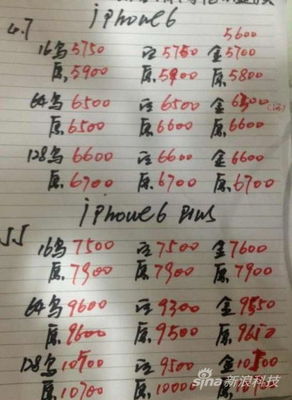 iPhone6
4.7
5600
16乌 5750 白 5750 金 5700
原 5900 原 5900 原 5800
64乌 6500 白 6500 金
原 6500 原 6600 原 6600
128乌 6600 白 6600 金 6600
原 6700 原 6700 原 6700
iPhone6 Plus
5.5
16乌 7500 白 7500 金 7600
原 7900 原 7900 原 7900
64乌 9600 白 9300 金 9550
原 9600 原 9500 原
128乌 白 9500 金
原 10700 原 10000 原
sina 新浪科技